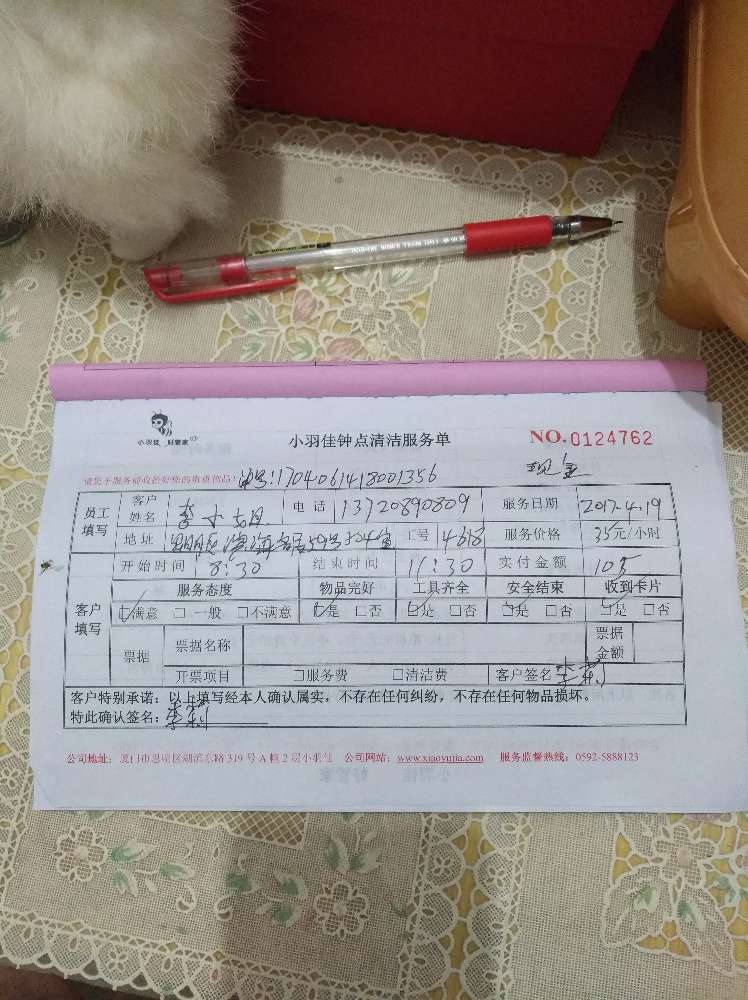 小羽佳 好管家
小羽佳钟点清洁服务单
NO.0124762
请您于服务前收拾好您的贵重物品!
单号:1704061418001356
现金
员工填写
客户姓名
电话 13720890809
服务日期 2017.4.19
地址 204室
工号 4618
服务价格 35元/小时
开始时间 8:30
结束时间 11:30
实付金额 105
客户填写
服务态度 物品完好 工具齐全 安全结束 收到卡片
满意 □一般 □不满意 是 □否 是 □否 是 □否 是 □否
票据
票据名称
票据金额
开票项目 □服务费 □清洁费 客户签名 李莉
客户特别承诺:以上填写经本人确认属实,不存在任何纠纷,不存在任何物品损坏。
特此确认签名:李莉
公司地址:厦门市思明区湖滨东路 319 号 A 幢 2 层小羽佳 公司网站:www.xiaoyujia.com 服务监督热线:0592-5888123